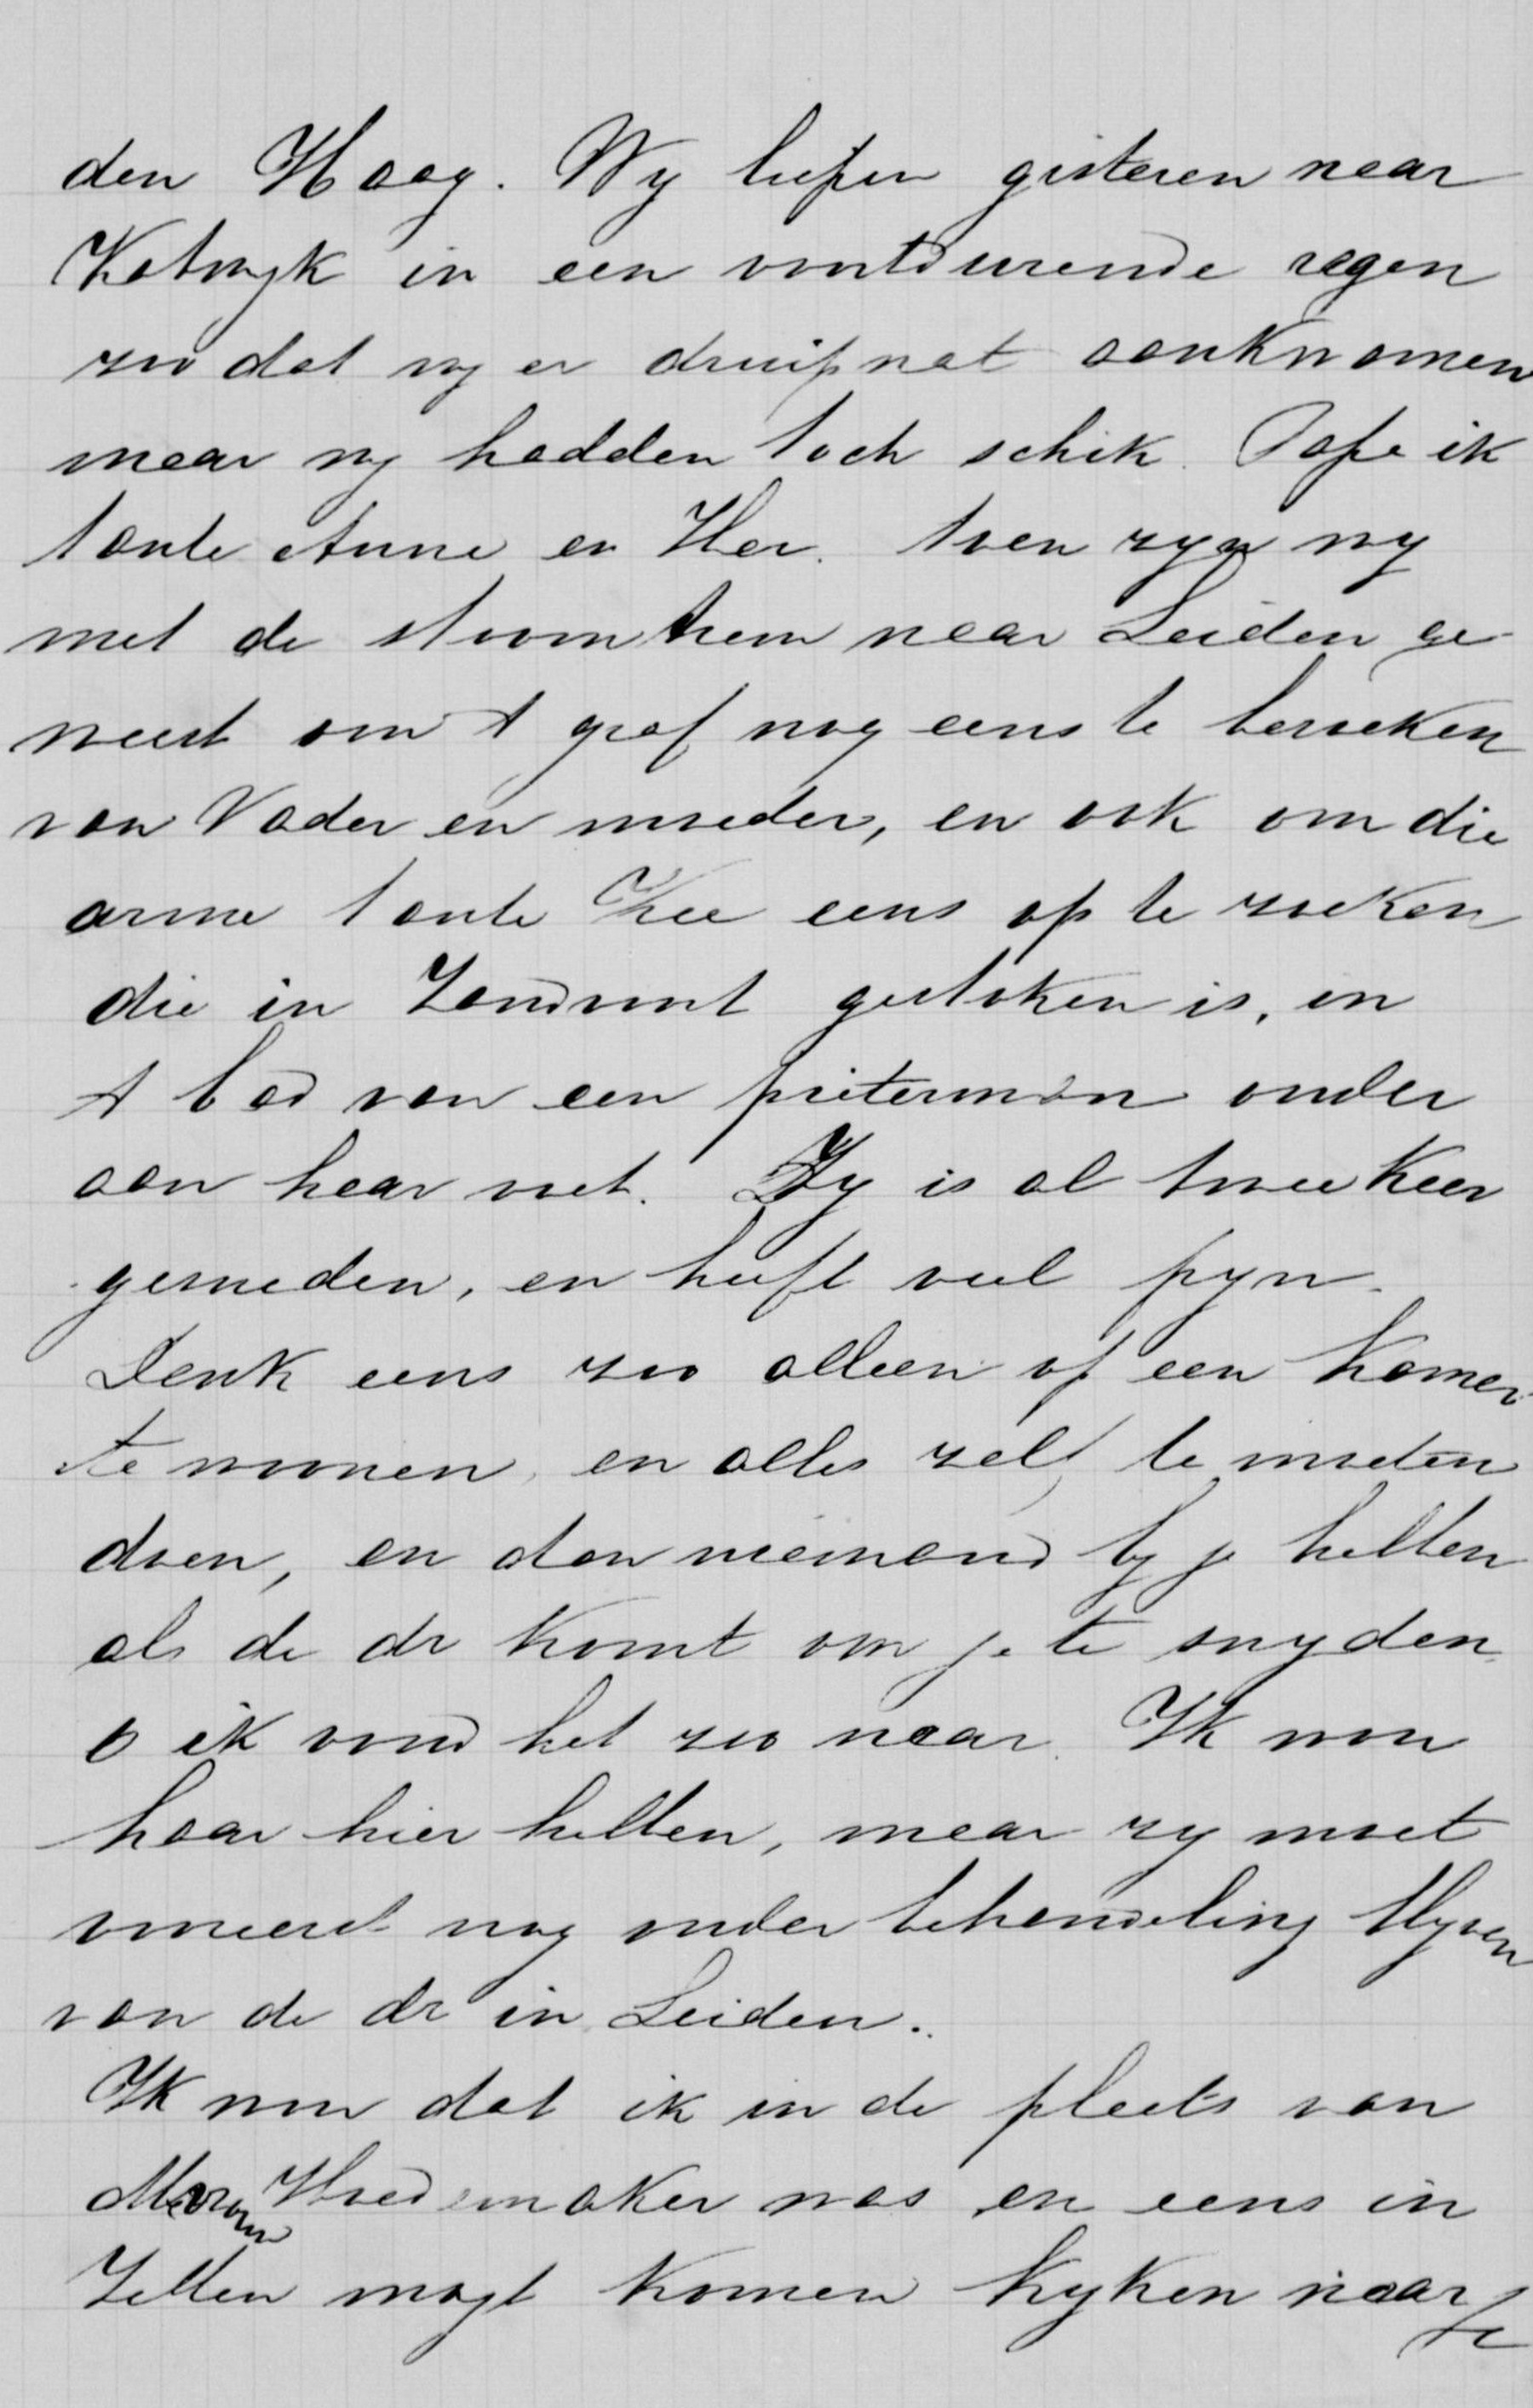 den Haag. Wy liepen gisteren naar
Katwyk in een voortdurende regen
zoo dat wy er druipnat aankwamen
maar wy hadden toch schik. Pape ik
tante Anne en Her. toen zyn wy
met de stoomtrem naar Leiden ge
weest om 't graf nog eens te bezoeken
van Vader en moeder, en ook om die
arme tante Kee eens op te zoeken
die in Zandvoort gestoken is, in
't bad van een pieterman onder
aan haar voet. Zy is al twee keer
gesneden, en heeft veel pyn.
Denk eens zoo alleen op een kamer
te wonen, en alles zelf te moeten
doen, en dan niemand by je hebben
als de dr komt om je te snyden.
o ik vond het zoo naar. Ik wou
haar hier hebben, maar zy moet
vooreerst nog onder behandeling blyven
van de dr in Leiden.
Ik wou dat ik in de plaats van
Mevrouw Hoedemaker was en eens in
Zetten mogt komen kyken naar je